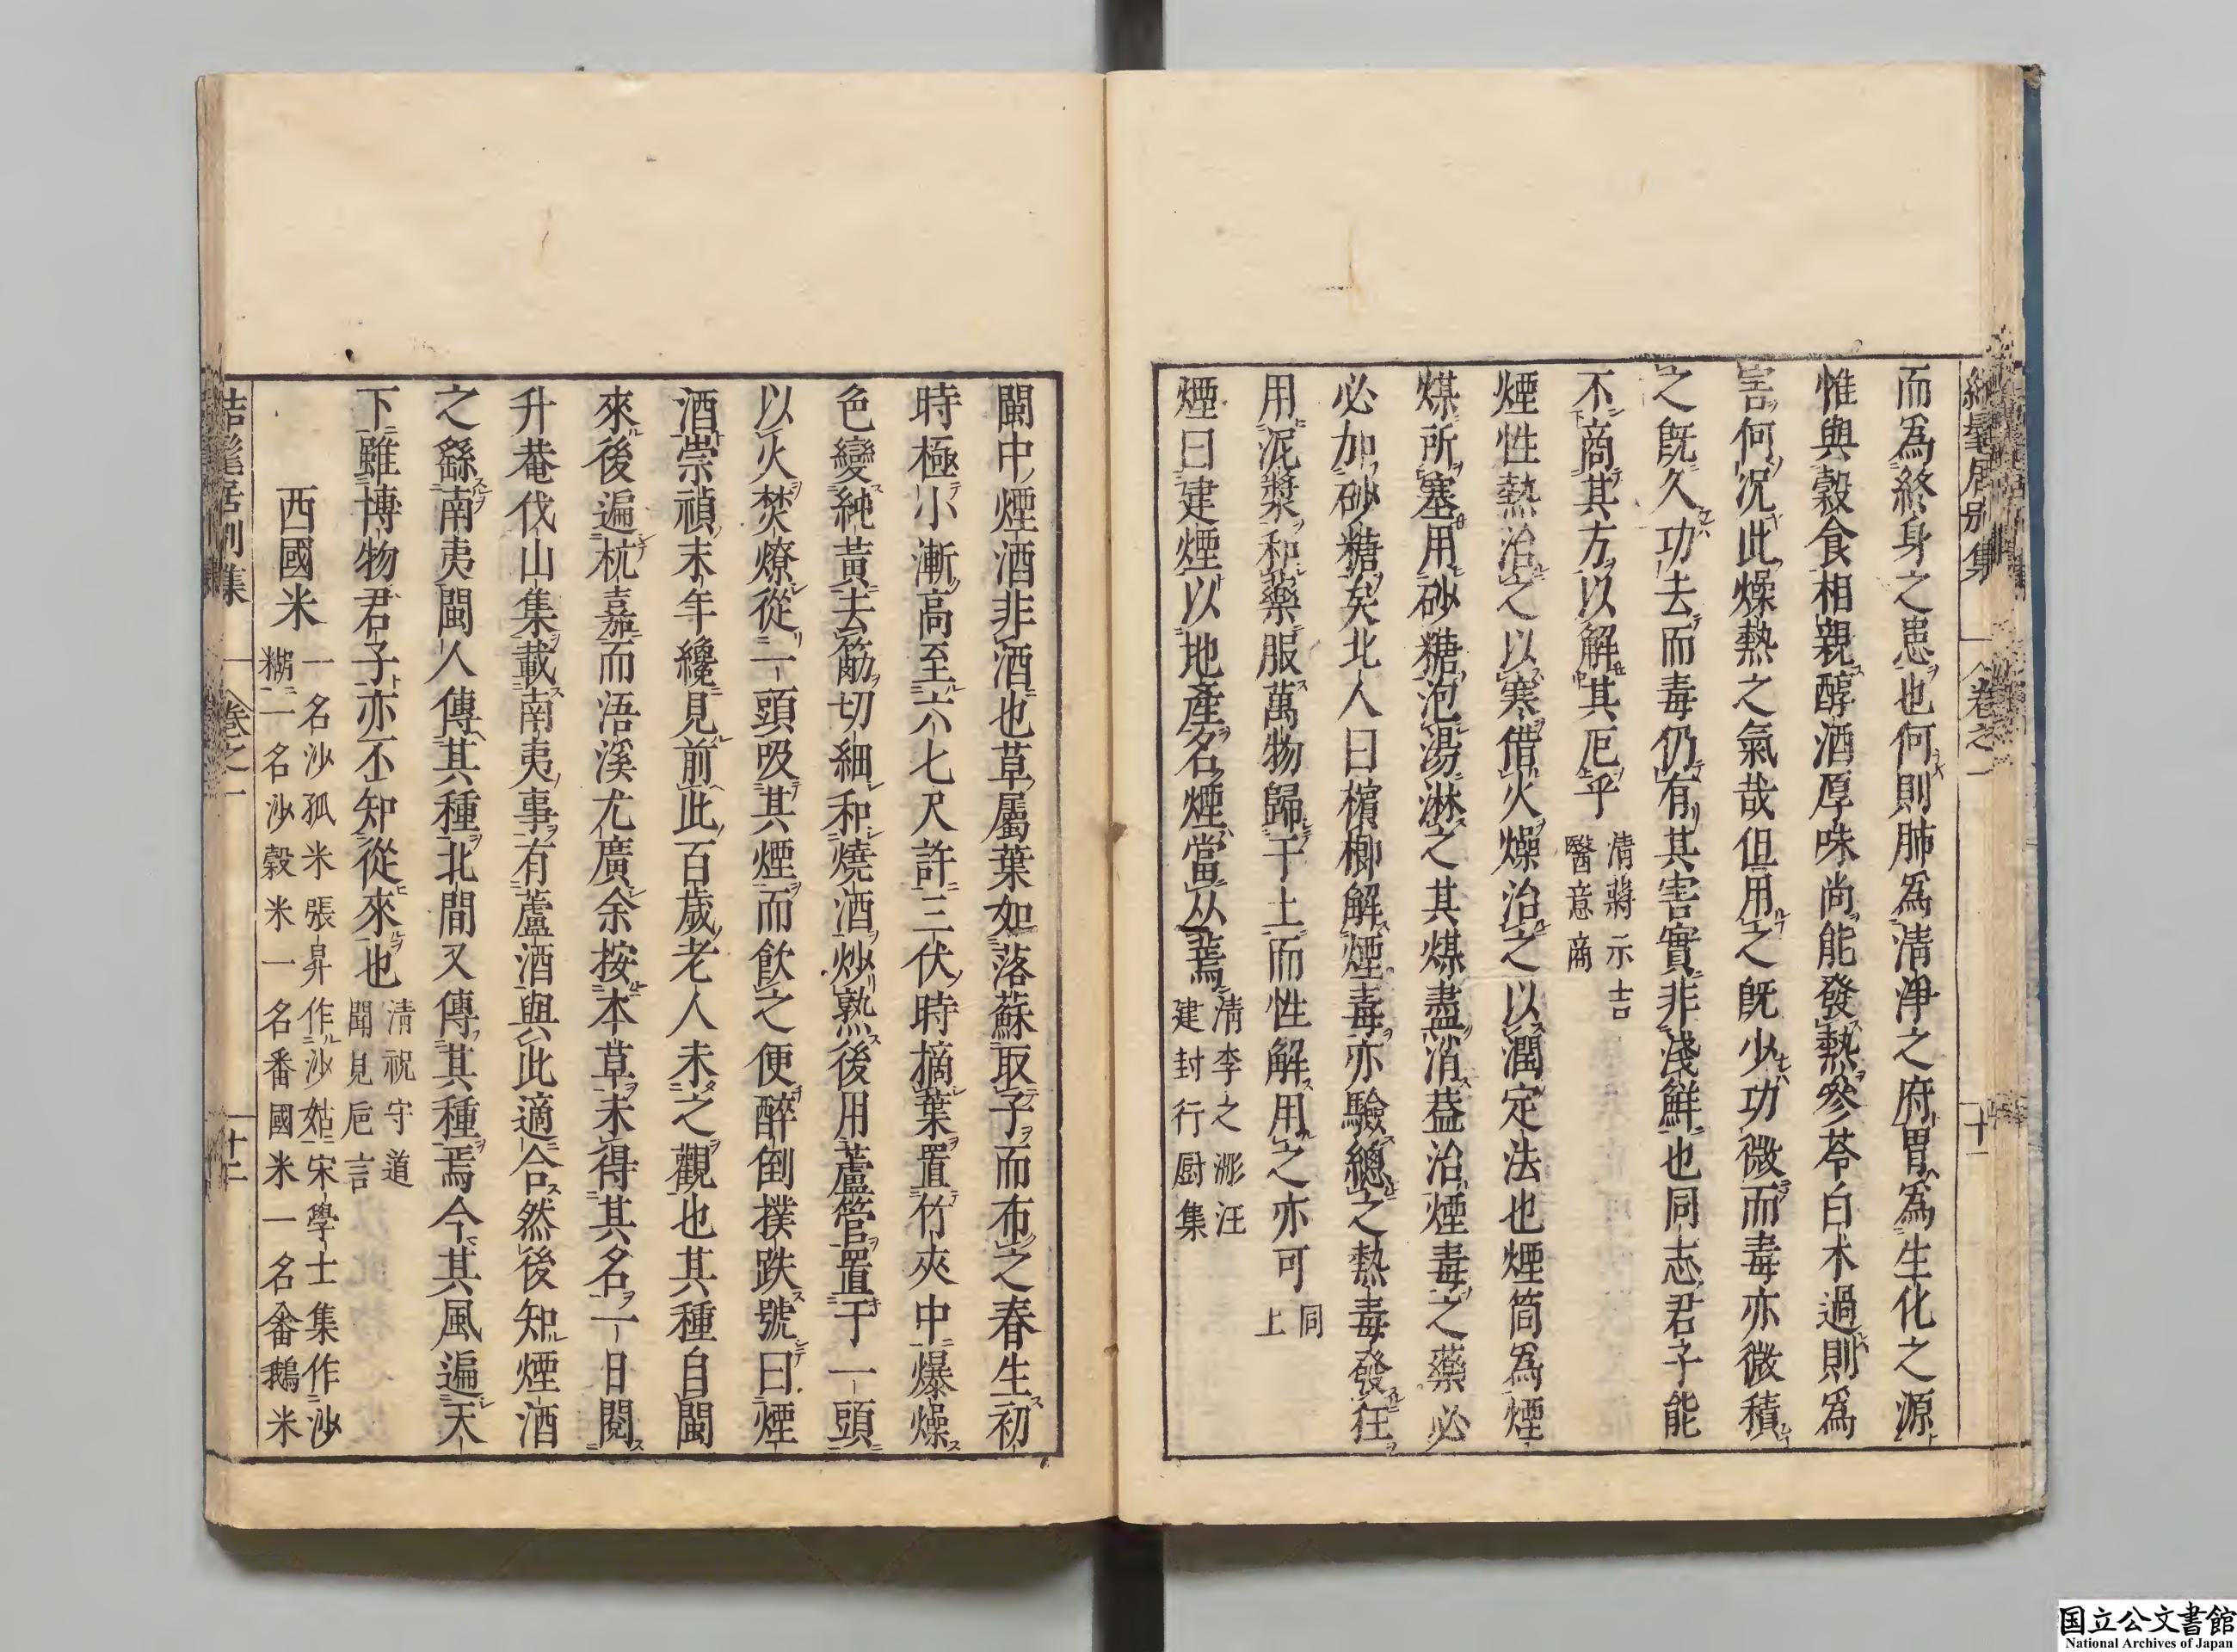 結髦居別集 卷之一 十一
而爲終身之患也何則肺爲清淨之府胃爲生化之源
惟與穀食相親醇酒厚味尚能發熱參苓白朮過則爲
害何況此燥熱之氣哉但用之既少功微而毒亦微積
之既久功去而毒仍有其害實非淺鮮也同志君子能
不商其方以解其厄乎 清蔣示吉
醫意商
煙性熱治之以寒借火燥治之以潤定法也煙筒爲煙
煤所塞用砂糖泡湯淋之其煤盡消葢治煙毒之藥必
必加砂糖矣北人曰檳榔解煙毒亦驗總之熱毒發狂
用泥漿和藥服萬物歸于土而性解用之亦可 同
上
煙曰建煙以地產名煙當从蔫 清李之㴑汪
建封行厨集
閩中煙酒非酒也草屬葉如落蘇取子而布之春生初
時極小漸高至六七尺許三伏時摘葉置竹夾中爆燥
色變純黃去筋切細和燒酒炒熟後用蘆管置于一頭
以火焚燎從一頭吸其煙而飲之便醉倒撲跌號曰煙
酒崇禎末年纔見前此百歲老人未之觀也其種自閩
來後遍杭嘉而浯溪尤廣余按本草未得其名一日閱
升菴伐山集載南夷事有蘆酒與此適合然後知煙酒
之繇南夷閩人傳其種北間又傳其種焉今其風遍天
下雖博物君子亦不知從來也 清祝守道
聞見巵言
西國米 一名沙孤米張昇作沙姑宋學士集作沙
糊一名沙穀米一名番國米一名畨鵝米
結髦居別集 卷之一 十二
国立公文書館
National Archives of Japan